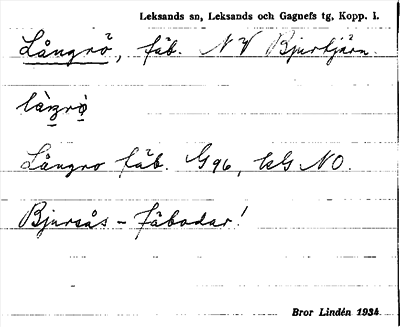 Leksands sn, Leksands och Gagnefs tg, Kopp. l.
Långrö, fäb. NV Bjurtjärn.
Långro fäb. G96, bG NO.
Bjursås - fäbodar!
Bror Lindén 1934